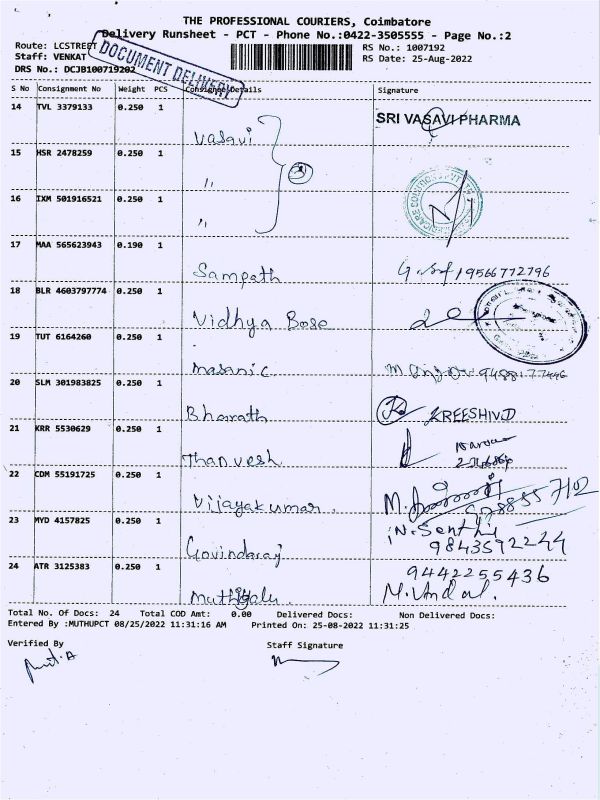 THE PROFESSIONAL COURIERS, Coimbatore
Delivery Runsheet - PCT - Phone No.:0422-3505555 - Page No.:2
Route: LCSTREET
RS No.: 1007192
Staff: VENKAT
RS Date: 25-Aug-2022
DRS No.: DCJB100719202
DOCUMENT DELIVERY
S No Consignment No Weight PCS Consignee Details Signature
14 TVL 3379133 0.250 1
Vasavi SRI VASAVI PHARMA
15 HSR 2478259 0.250 1
〃
16 IXM 501916521 0.250 1
〃
17 MAA 565623943 0.190 1
Sampath 9566772796
18 BLR 4603797774 0.250 1
Vidhya Bose
19 TUT 6164260 0.250 1
masanic
20 SLM 301983825 0.250 1
Bharath KREESHIV.D
21 KRR 5530629 0.250 1
Thanvesh
22 CDM 55191725 0.250 1
Vijayakumar.
23 MYD 4157825 0.250 1
Govindaraj 9843592244
24 ATR 3125383 0.250 1
9442255436
Total No. Of Docs: 24 Total COD Amt: 0.00 Delivered Docs: Non Delivered Docs:
Entered By :MUTHUPCT 08/25/2022 11:31:16 AM Printed On: 25-08-2022 11:31:25
Verified By Staff Signature